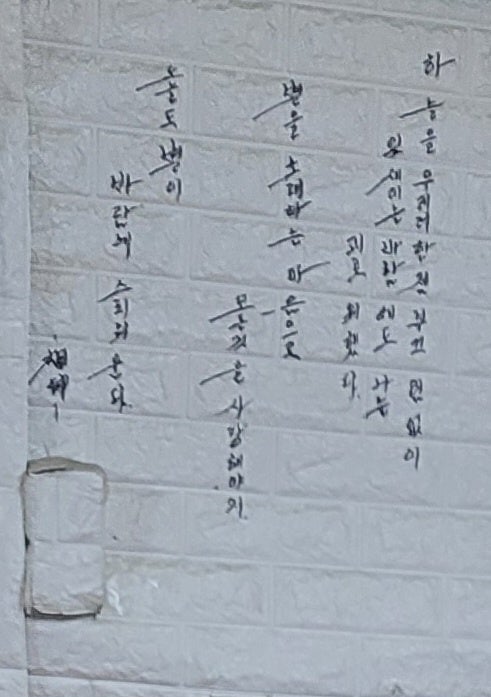 하늘을 우러러 한점 부끄럼 없이
잎새이는 바람에도 나는
괴로워했다.
별을 노래하는 마음으로
모든것을 사랑해야지.
오늘도 별이
바람에 스치 운다.